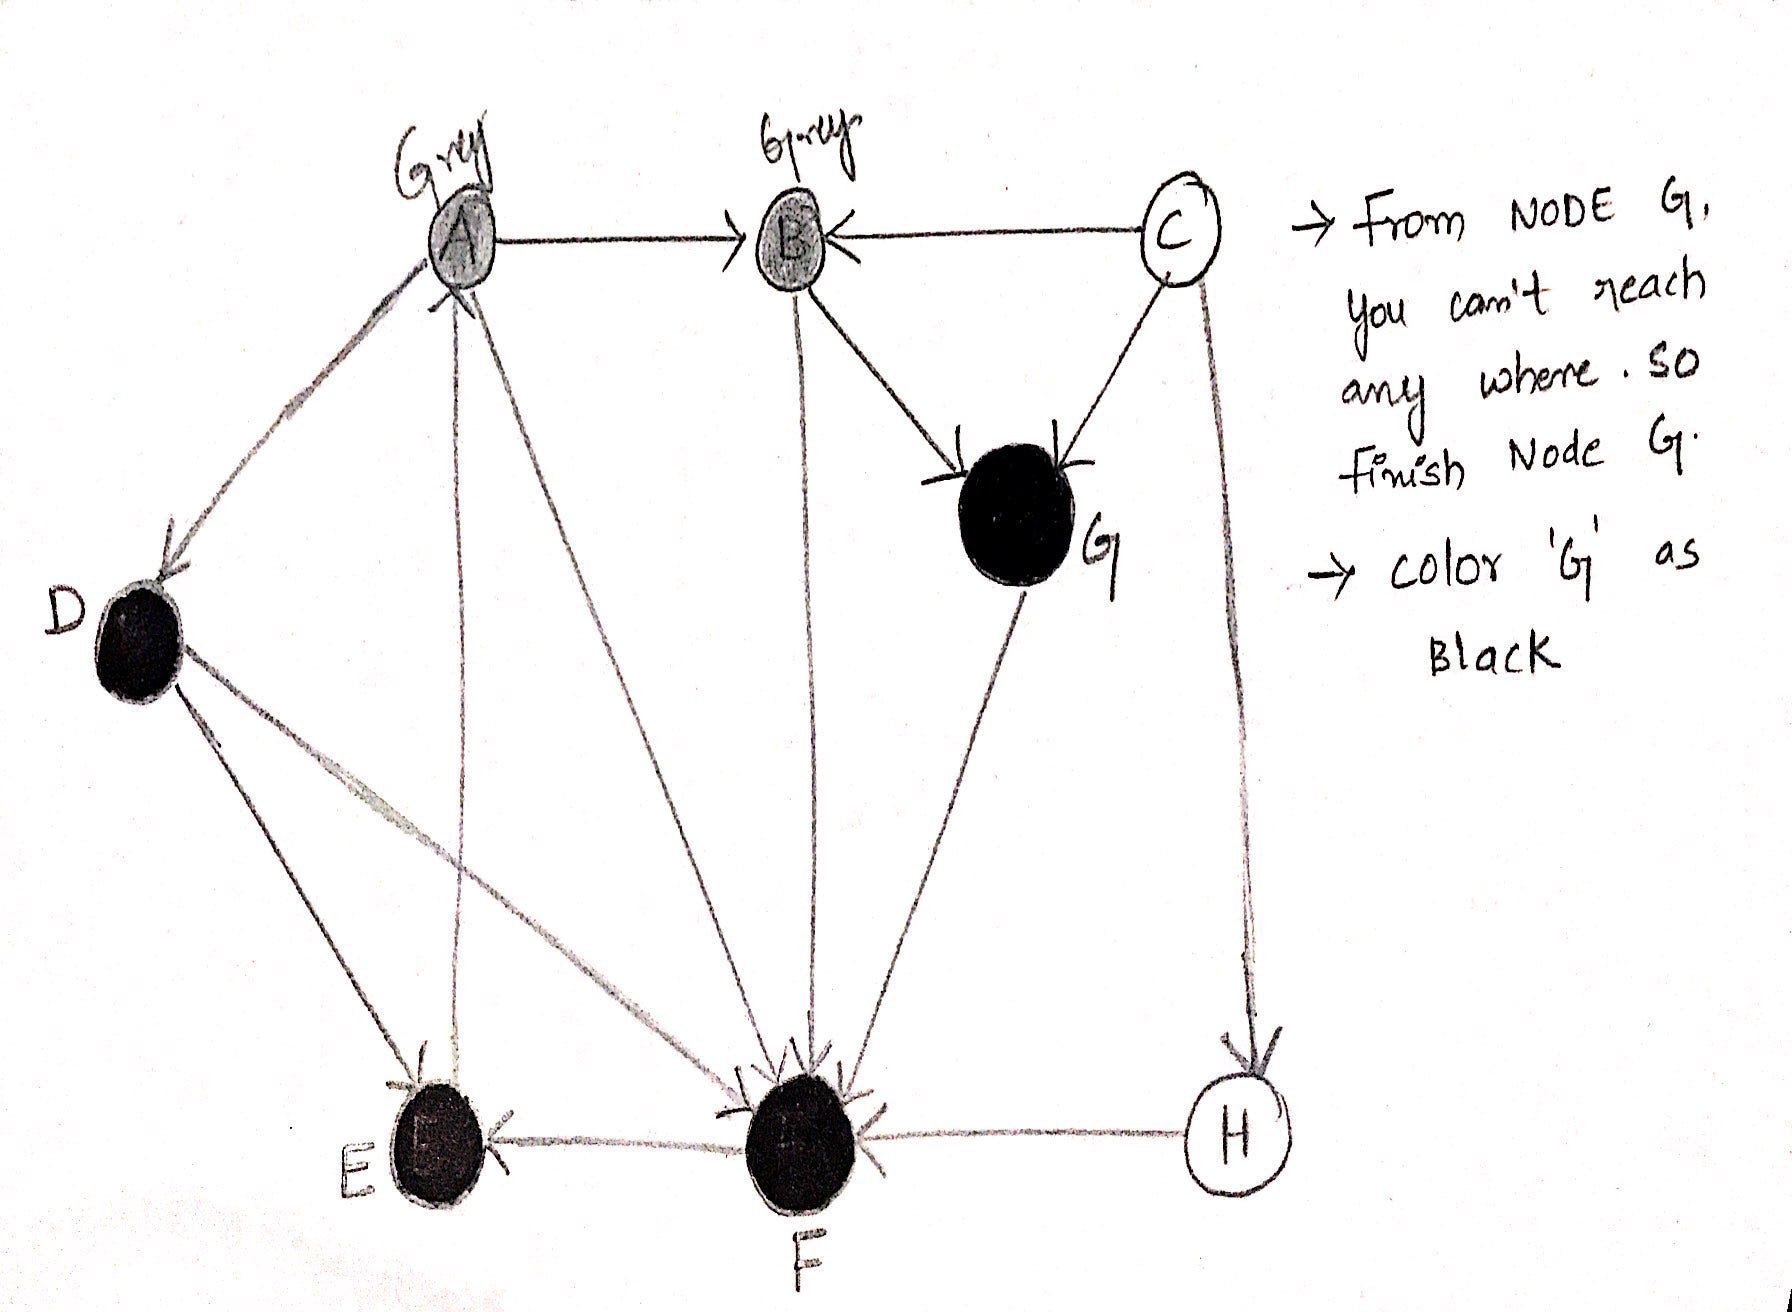 Grey
Grey
A
B
C
→ From NODE G,
you can't reach
any where. so
finish Node G.
→ color 'G' as
Black
G
D
E
E
H
F